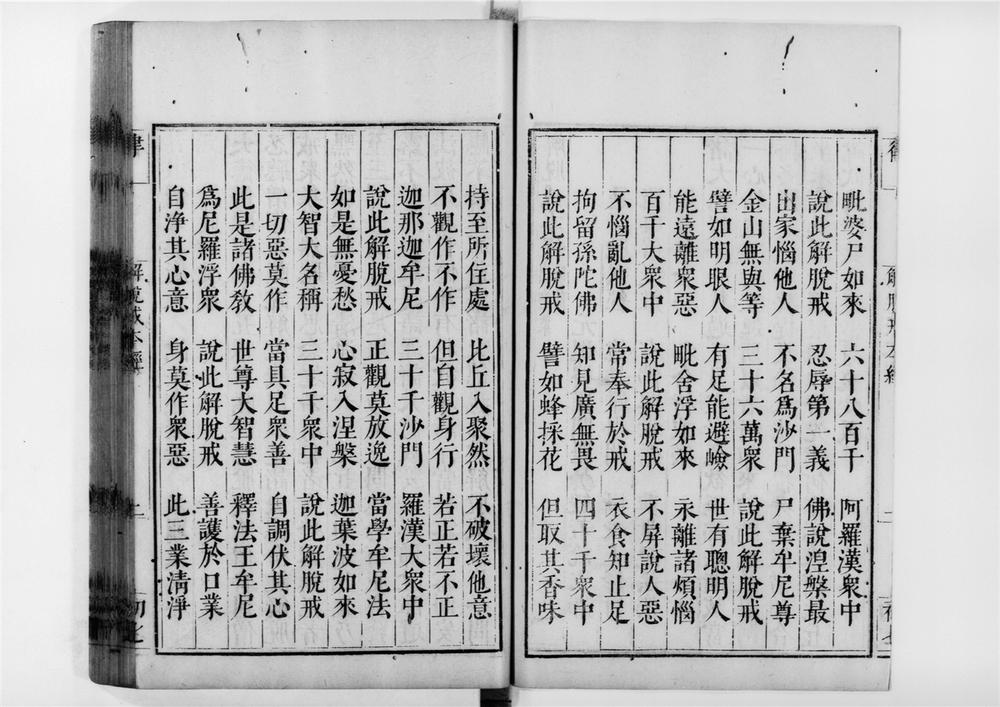 毗婆尸如來　六十八百千　阿羅漢衆中
說此解脫戒　忍辱第一義　佛說涅槃最
出家惱他人　不名爲沙門　尸棄牟尼尊
金山無與等　三十六萬衆　說此解脫戒
譬如明眼人　有足能避嶮　世有聰明人
能遠離衆惡　毗舍浮如來　永離諸煩惱
百千大衆中　說此解脫戒　不屏說人惡
不惱亂他人　常奉行於戒　衣食知止足
拘留孫陀佛　知見廣無畏　四十千衆中
說此解脫戒　譬如蜂採花　但取其香味
持至所住處　比丘入聚然　不破壞他意
不觀作不作　但自觀身行　若正若不正
迦那迦牟尼　三十千沙門　羅漢大衆中
說此解脫戒　正觀莫放逸　當學牟尼法
如是無憂愁　心寂入涅槃　迦葉波如來
大智大名稱　三十千衆中　說此解脫戒
一切惡莫作　當具足衆善　自調伏其心
此是諸佛敎　世尊大智慧　釋法王牟尼
爲尼羅浮衆　說此解脫戒　善護於口業
自淨其心意　身莫作衆惡　此三業淸淨